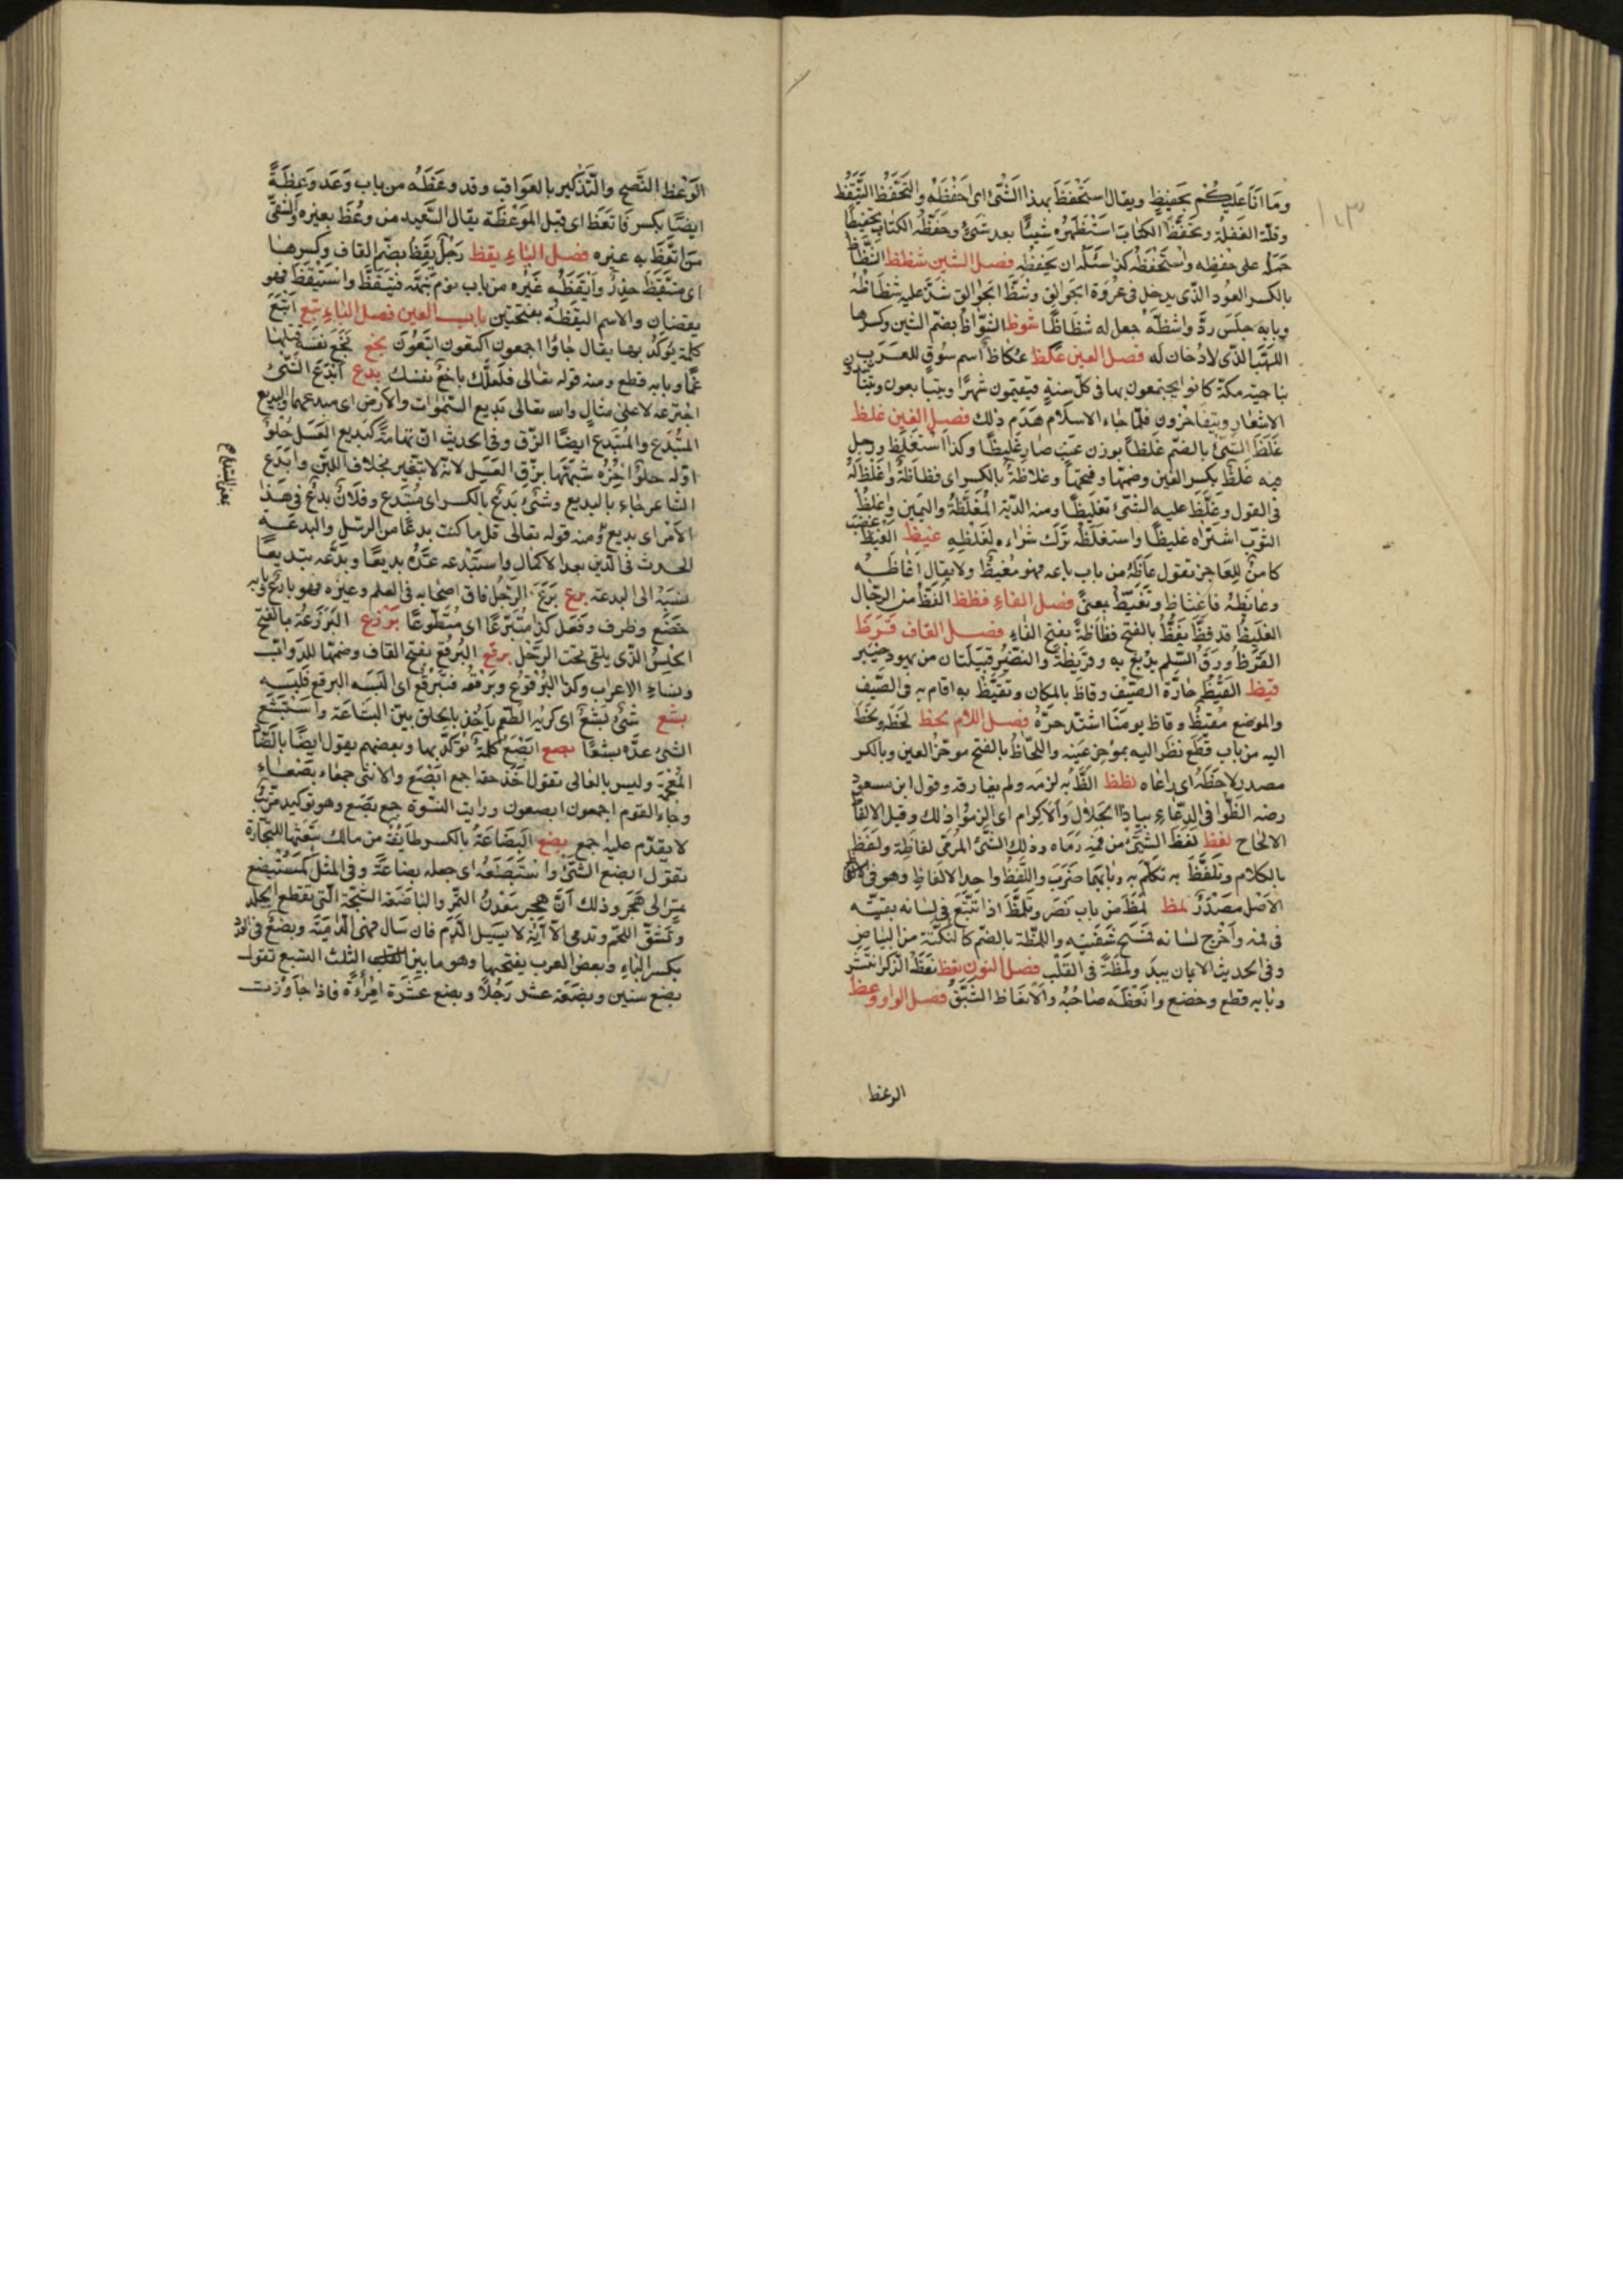 وَمَا اَنَا عَلَيكُمْ بحَفِيظٍ ويقال استَحْفَظَ بهذا الشَّئ اى احْفَظْهُ والتَحَفُّظُ التَّيَقُّظ
وقلّة الغَفلة وتحفَّظَ الكتابَ استَظهَرَه شيئًا بعد شَئ وحَفّظَهُ الكتابَ تحفيظًا
حَمَله على حفظه واستَحْفَظَه كذا سَئَلَه ان يَحفِظَه فصل الشين شظظ الشِّظَاظُ
بالكسر العُود الذّى يدخل فى عُروَة الجَوالِق وشَظَّ الجُوالِق شَدَّ عليه شظَاظَهُ
وبابه رَدَّ واشظَّهُ جعل له شظَاظًا شوظ الشُّوَاظُ بضمّ الشين وكسرها
اللهَبُ الذّى لا دُخان لَه فصل العين عكظ عُكاظ اسم سُوقٍ للعَرَب
بناحية مكّة كانوا يجتمعون بها فى كلّ سنةٍ فيقيمون شَهرًا ويتبايعون ويتناشدون
الاشعار ويتفاخرون فلمّا جاء الاسلام هَدَم ذلك فصل الغين غلظ
غَلُظَ الشّئ بالضّم غلظًا بوزن عنَبٍ صار غليظًا وكذا استَغلَظ ورجل
فيه غلظَة بكسر الغين وضمّها وفتحها وغلاظَةً بالكسر اى فظاظَة واغلَظَ لهُ
فى القول وغلَّظَ عليه الشّئ تغليظًا ومنه الدّية المُغلّظَةُ واليمين واغلَظَ
الثوبَ اشتَراه غليظًا واستغلَظَه تَرَك شراءه لغلظِهِ غيظ الغَيظ غضب
كامنٌ للعَاجز تقول غاظَهُ من باب باعه فهو مَغيظٌ ولا يقال اَغاظَهُ
وغايَظَهُ فاغتاظ وتَغيَّظَ بمعنًى فصل الفاء فظظ الفَظُّ من الرّجال
الغليظُ قد فظَّ يَفَظُّ بالفتح فظاظةً بفتح الفاء فصل القاف قرظ
القَرَظُ ورَقُ السَّلم يدبَغ به وقُرَيظَةُ والنَضيرُ قبيلتان من يهود خيبر
قيظ القَيظُ حَارَّة الصّيف وقاظ بالمكان وتَقَيَّظَ به اقام به فى الصّيف
والموضع مَقيظٌ وقاظ يومنا اشتدّ حرّهُ فصل اللام لحظ لحَظَه ولَحَظَ
اليه من باب قطَع نظَر اليه بمؤخر عَينه واللَّحاظُ بالفتح مؤخرُ العين وبالكسر
مصدر لاحظَهُ اى راعَاه لظظ الظَّ به لزمَه ولم يفارقه وقول ابن مسعود
رضه الظّوا فى الدّعاء بياذا الجَلال والاكرام اى الزموا ذلك وقيل الالظاظ
الالحاح لفظ لفَظَ الشّئ من فَمِه رَمَاه وذلك الشّئ المَرمى لفاظَة ولفَظ
بالكلام وتلفّظَ به تكلّم به وبابهما ضَرَب واللَّفظُ واحد الالفاظ وهو فى
الاصل مَصدَرٌ لمظ لَمظَ من باب نَصَر وتَلَمَّظَ اذا تتبّع فى لسانه بقيّة
فى فمه واَخرَج لسانه فمَسَح شفَتَيه واللمظة بالضّم كالنُكتَة من البياض
وفى الحديث الايمان يبدَ ولمظةً فى القَلب فصل النون نعظ نَعَظَ الذّكرُ انتَشَر
وبابه قطع وخضع وانعَظَه صاحبُهُ والانعَاظ الشّبَقُ فصل الواو وعظ
الوعظ
الوَعظ النّصح والتّذكير بالعَواقب وقد وعَظَه من باب وَعَد وَعِظَةً
ايضًا بكسر فاتّعَظ اى قَبل المَوعظَة يقال السّعيد من وُعظَ بغيره والشقىّ
من اتّعَظَ به غيره فصل الياء يقظ رَجُلٌ يَقظٌ بضمّ القاف وكسرها
اى متيَقظ حَذِرٌ واَيقَظَه غَيرُه من باب نوم نبّهَهُ فتيَقّظَ واستَيقَظَ فهو
يقضان والاسم اليَقظة بفتحتين باب العين فصل التاء تبع اَبتَع
كلمة يُؤكّدُ بها يقال جاؤا اجمعون اكتعون ابتعُون بخع بَخَع نفسَه قتلها
غمًّا وبابه قطع ومنه قوله تعالى فلعلَّك باخعٌ نفسَك بدع اَبدَعَ الشَّئ
اخترعه لا على مثالٍ والله تعالى بديع السّموات والارض اى مبدعهما والبديع
المُبتَدع والمُبتَدَع ايضًا الزّق وفى الحديث انّ تهامَة كبديع العَسَل حُلوٌ
اوّله حلوٌ اخِرُه شبَّهَهَا بزقّ العَسَل لانّه لا يتغير بخلاف اللبن وابدَع
الشاعر جاء بالبديع وشئ بِدعٌ بالكسر اى مُبتَدع وفلانٌ بدعٌ فى هذا
الامر اى بديع ومنه قوله تعالى قل ما كنت بدعًا من الرسل والبدعَة
الحدث فى الدّين بعد الاكمال واستَبدَعه عَدَّهُ بديعًا وبَدَّعَه تبديعًا
نسَبَهُ الى البدعة برع بَرَعَ الرّجُل فاق اصحابه فى العلم وغيره فهو بارعٌ وبابه
خضَع وظرف وفعَل كذا مُتَبَرّعًا اى مُتَطوّعًا برذع البَرذَعَة بالفتح
الحِلسُ الذّى يلقى تحت الرّحل برقع البُرقع بفتح القاف وضمّها للدّوابّ
ونساء الاعراب وكذا البُرقوع وبَرقَعَه فتبَرقَع اى البَسَه البرقع فلبِسَه
بشع شئٌ بشعٌ اى كريه الطّعم ياخُذ بالحلق بيّن البشاعَة واستَبشَع
الشئ عدّه بشعًا بصع ابصَعُ كلمةٌ يؤكَّد بها وبعضهم يقول ايضًا بالضّاد
المُعجَمَة وليس بالعالى تقول اخَذَ حقه اجمع ابصَع والانثى جمعاء بَصعَاء
وجاء القوم اجمعون ابصعون ورايت النّسوة جمع بُصَع وهو توكيد مرتّب
لا يقدّم عليه اجمع بضع البضَاعَةُ بالكسر طائفة من مالك تبعَثها للتّجَارة
تقول ابضع الشّئَ واستَبضَعَهُ اى جعله بضاعَةً وفى المثَل كَمُستَبضِع
تمرٍ الى هَجَر وذلك أنَّ هجر مَعدِنُ التَّمر والباضعَة الشّجّة التى تقطع الجلد
وتشقّ اللحَم وتدمى الّا انّه لا يسيل الدّم فان سَال فهى الدّاميَة وبضعٌ فى العدد
بكسر الباء وبعض العرب يفتحها وهو ما بين الثلث التسع تقول
بضع سنين وبضعَة عشر رَجُلًا وبضع عشرَة امرُءَةً فاذا جاوَزتَ